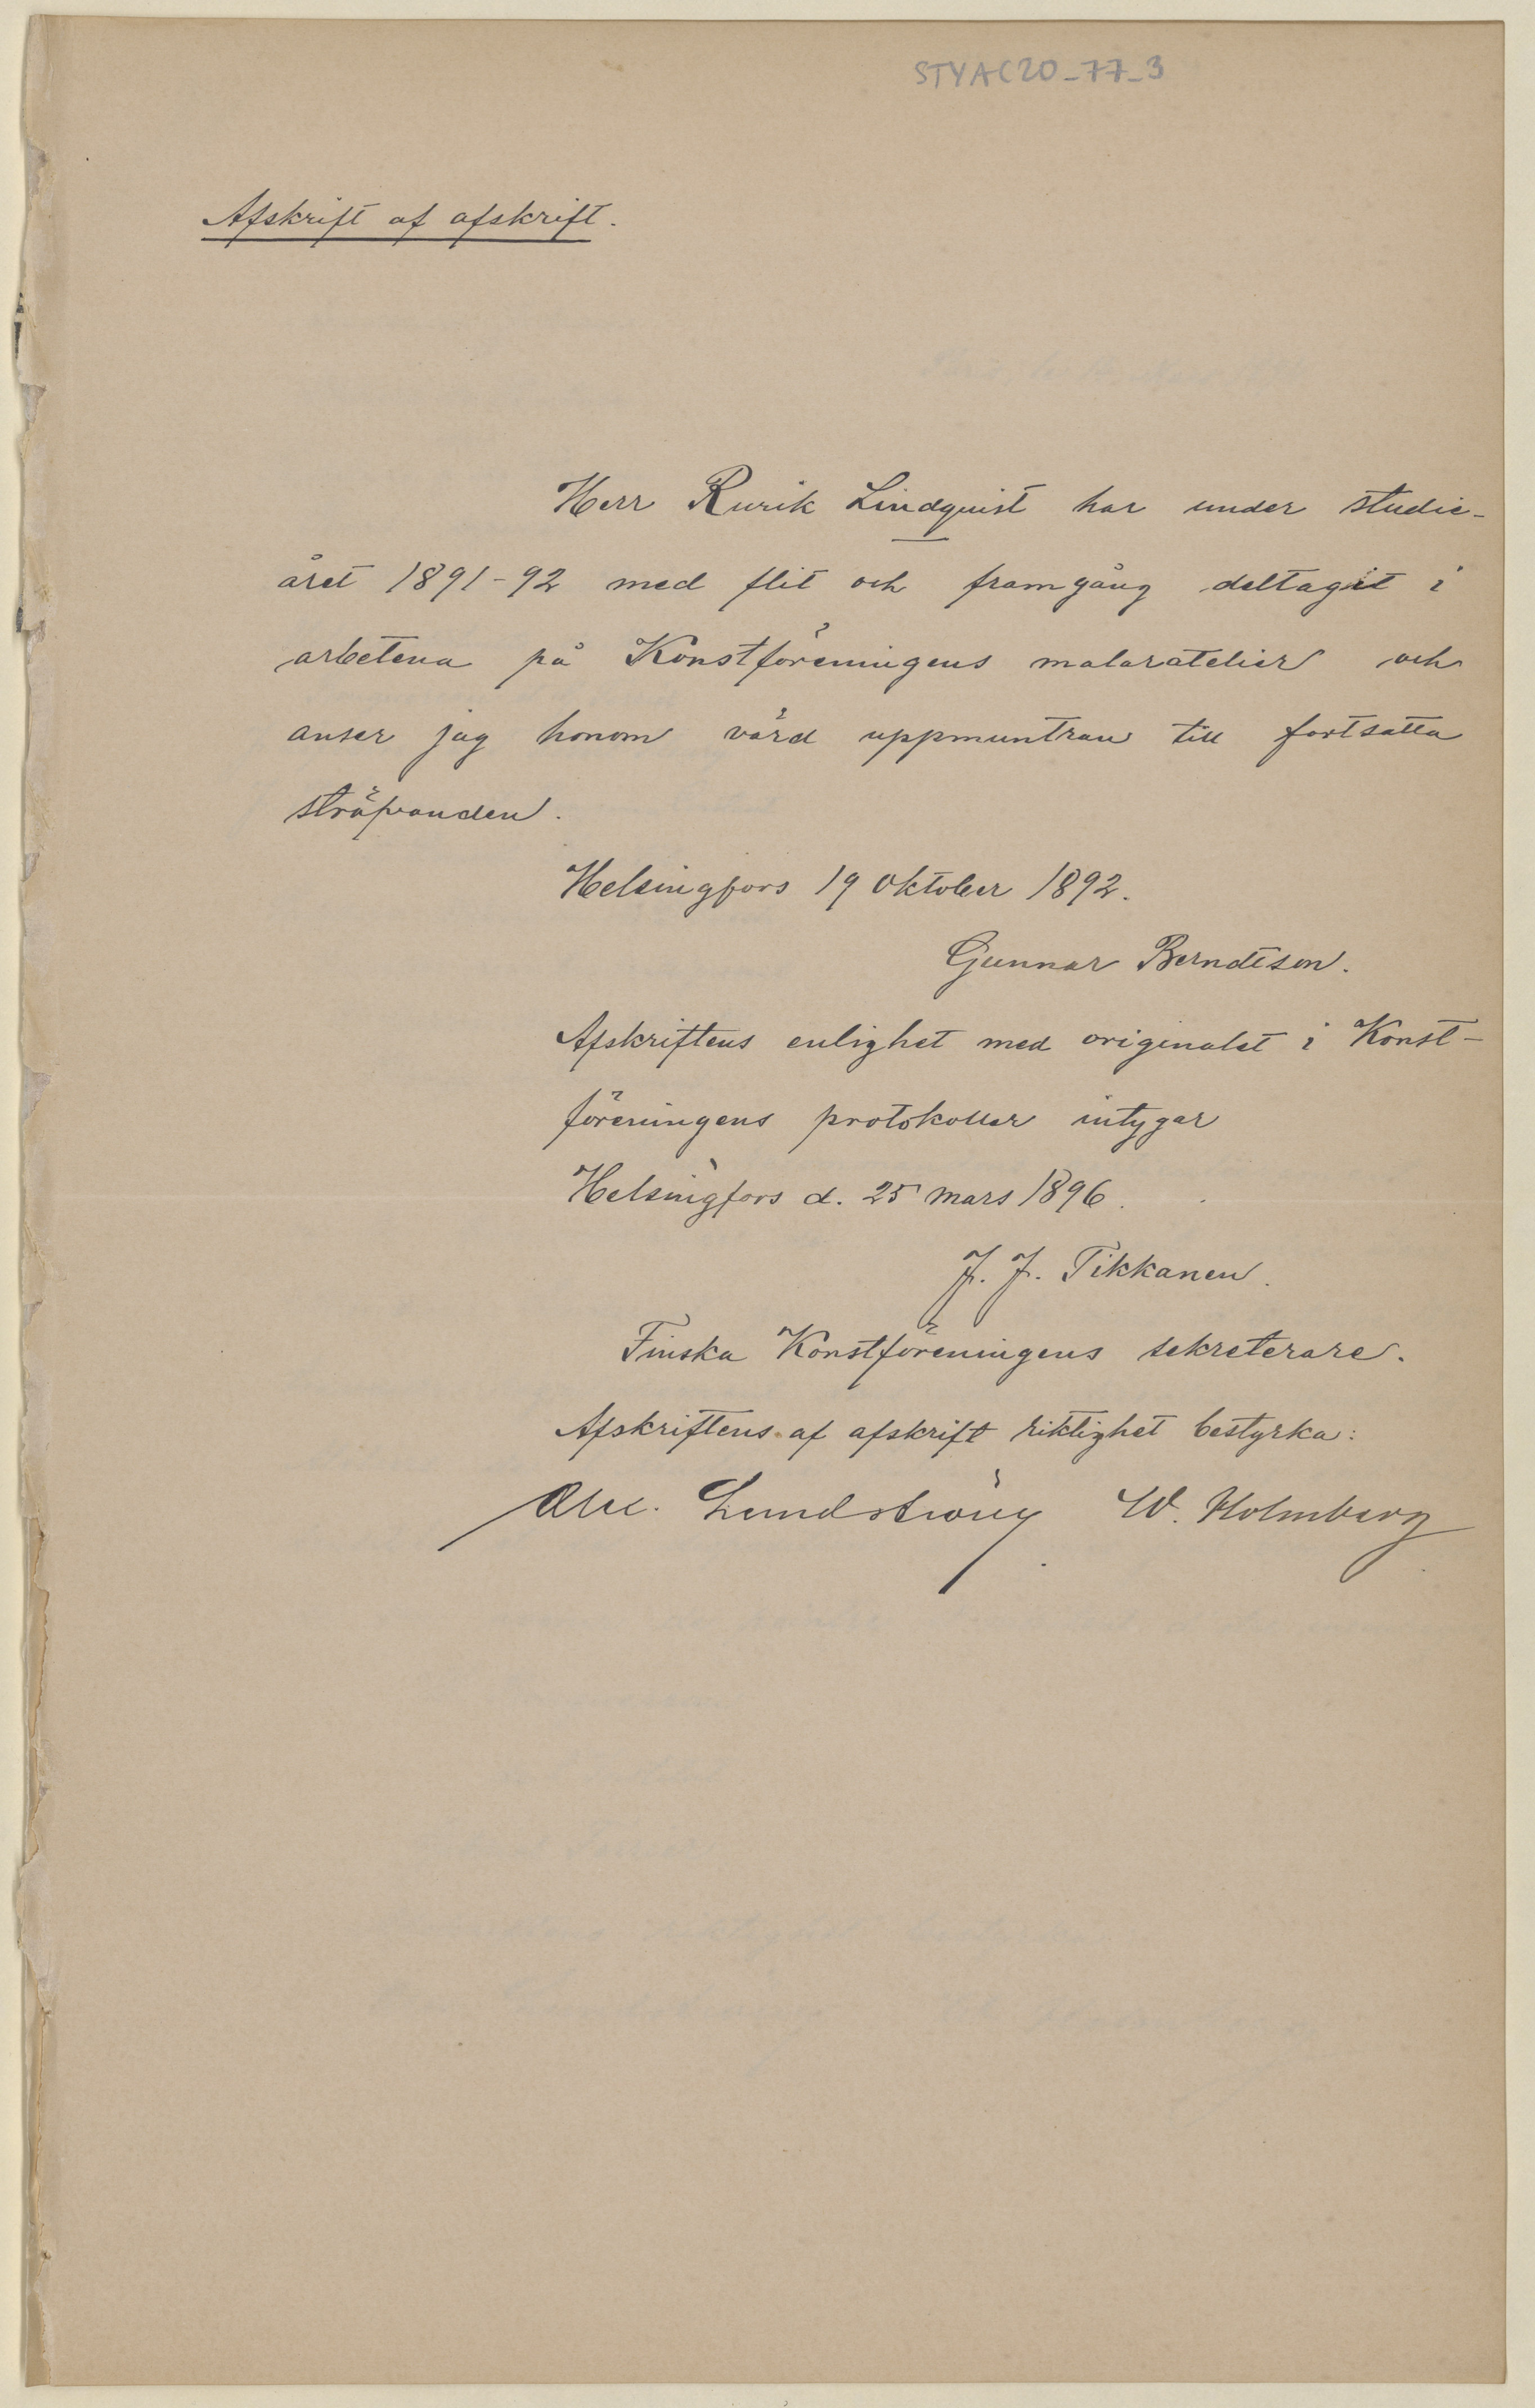 STYAC20_77_3
Afskrift af afskrift.
Herr Rurik Lindquist har under studie-
året 1891-92 med flit och framgång deltagit i
arbetena på Konstföreningens malaratelier och
anser jag honom värd uppmuntran till fortsatta
sträfvanden.
Helsingfors 19 Oktober 1892.
Gunnar Berndtson.
Afskriftens enlighet med originalet i Konst-
föreningens protokoller intygar
Helsingfors d. 25 mars 1896.
J. J. Tikkanen.
Finska Konstföreningens sekreterare.
Afskriftens af afskrift riktighet bestyrka:
Alex. Lundström W. Holmberg